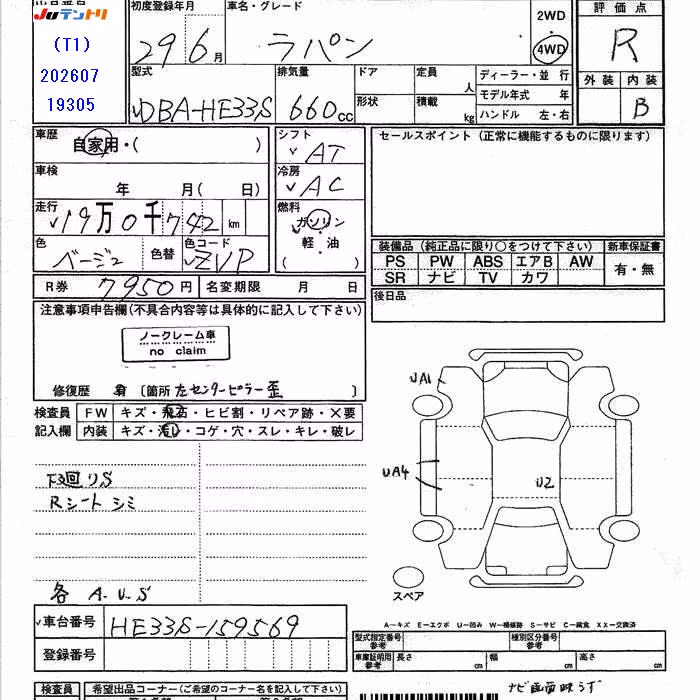 出品番号
JUテントリ
(T1)
202607
19305
初度登録年月
29 6 月
車名・グレード
ラパン
2WD
4WD
評価点
R
外装 内装
B
型式
DBA-HE33S
排気量
660 cc
ドア
形状
定員 人
積載 kg
ディーラー・並 行
モデル年式 年
ハンドル 左・右
車歴
自家用・( )
車検
年 月( 日)
走行
19万0千742 km
色
ベージュ
色替
色コード
ZVP
シフト
AT
冷房
AC
燃料
ガソリン
・
軽・油
( )
セールスポイント (正常に機能するものに限ります)
装備品 (純正品に限り○をつけて下さい) 新車保証書
PS PW ABS エアB AW
SR ナビ TV カワ
有・無
後日品
R券 7950円 名変期限 月 日
注意事項申告欄(不具合内容等は具体的に記入して下さい)
ノークレーム車
no claim
修復歴 有 [箇所 左センターピラー歪 ]
検査員
記入欄
FW キズ・飛石・ヒビ割・リペア跡・×要
内装 キズ・汚レ・コゲ・穴・スレ・キレ・破レ
下3回りS
Rシートシミ
各 A.U.S
UA1
UA4
U2
スペア
A―キズ E―エクボ U―凹み W―補修跡 S―サビ C―腐食 XX―交換済
車台番号
HE33S-159569
登録番号
型式指定番号
参考
種別区分番号
参考
車庫証明用
参考
長さ cm 幅 cm 高さ cm
検査員 希望出品コーナー(ご希望のコーナー名を記入して下さい)
ナビ画面映らず